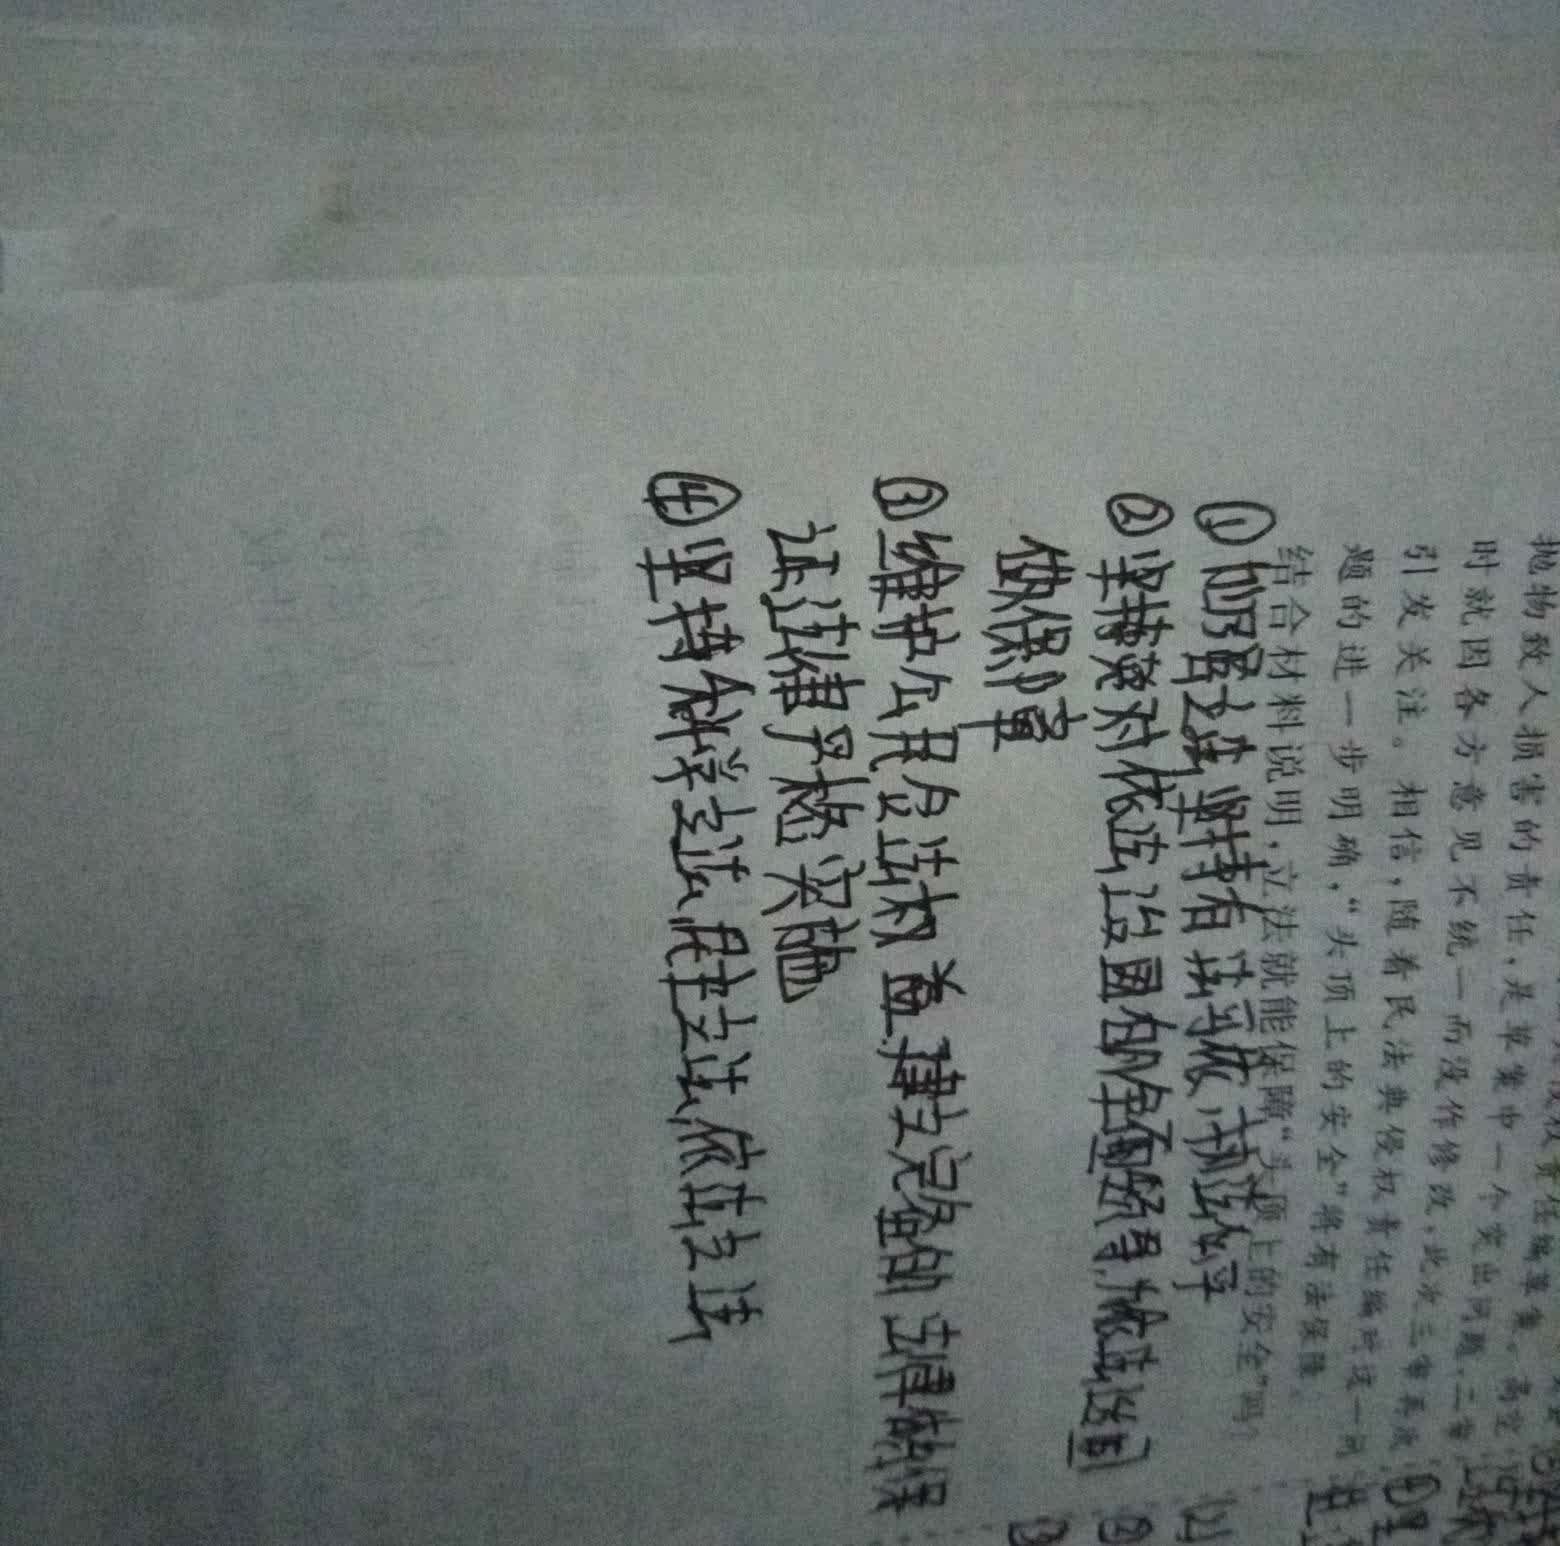 抛物致人损害的责任，是草案中一个突出问题，二审
时就因各方意见不统一而没作修改，此次三审再次
引发关注。相信，随着民法典侵权责任编对这一问
题的进一步明确，“头顶上的安全”将有法保障。
结合材料说明，立法就能保障“头顶上的安全”吗？
① 加强立法，坚持有法可依，
② 坚持党对依法治国的全面领导，依法治国
做保障
③ 维护公民合法权益，建立完备的法律做保
证法律严格实施
④ 坚持科学立法，民主立法，依法立法